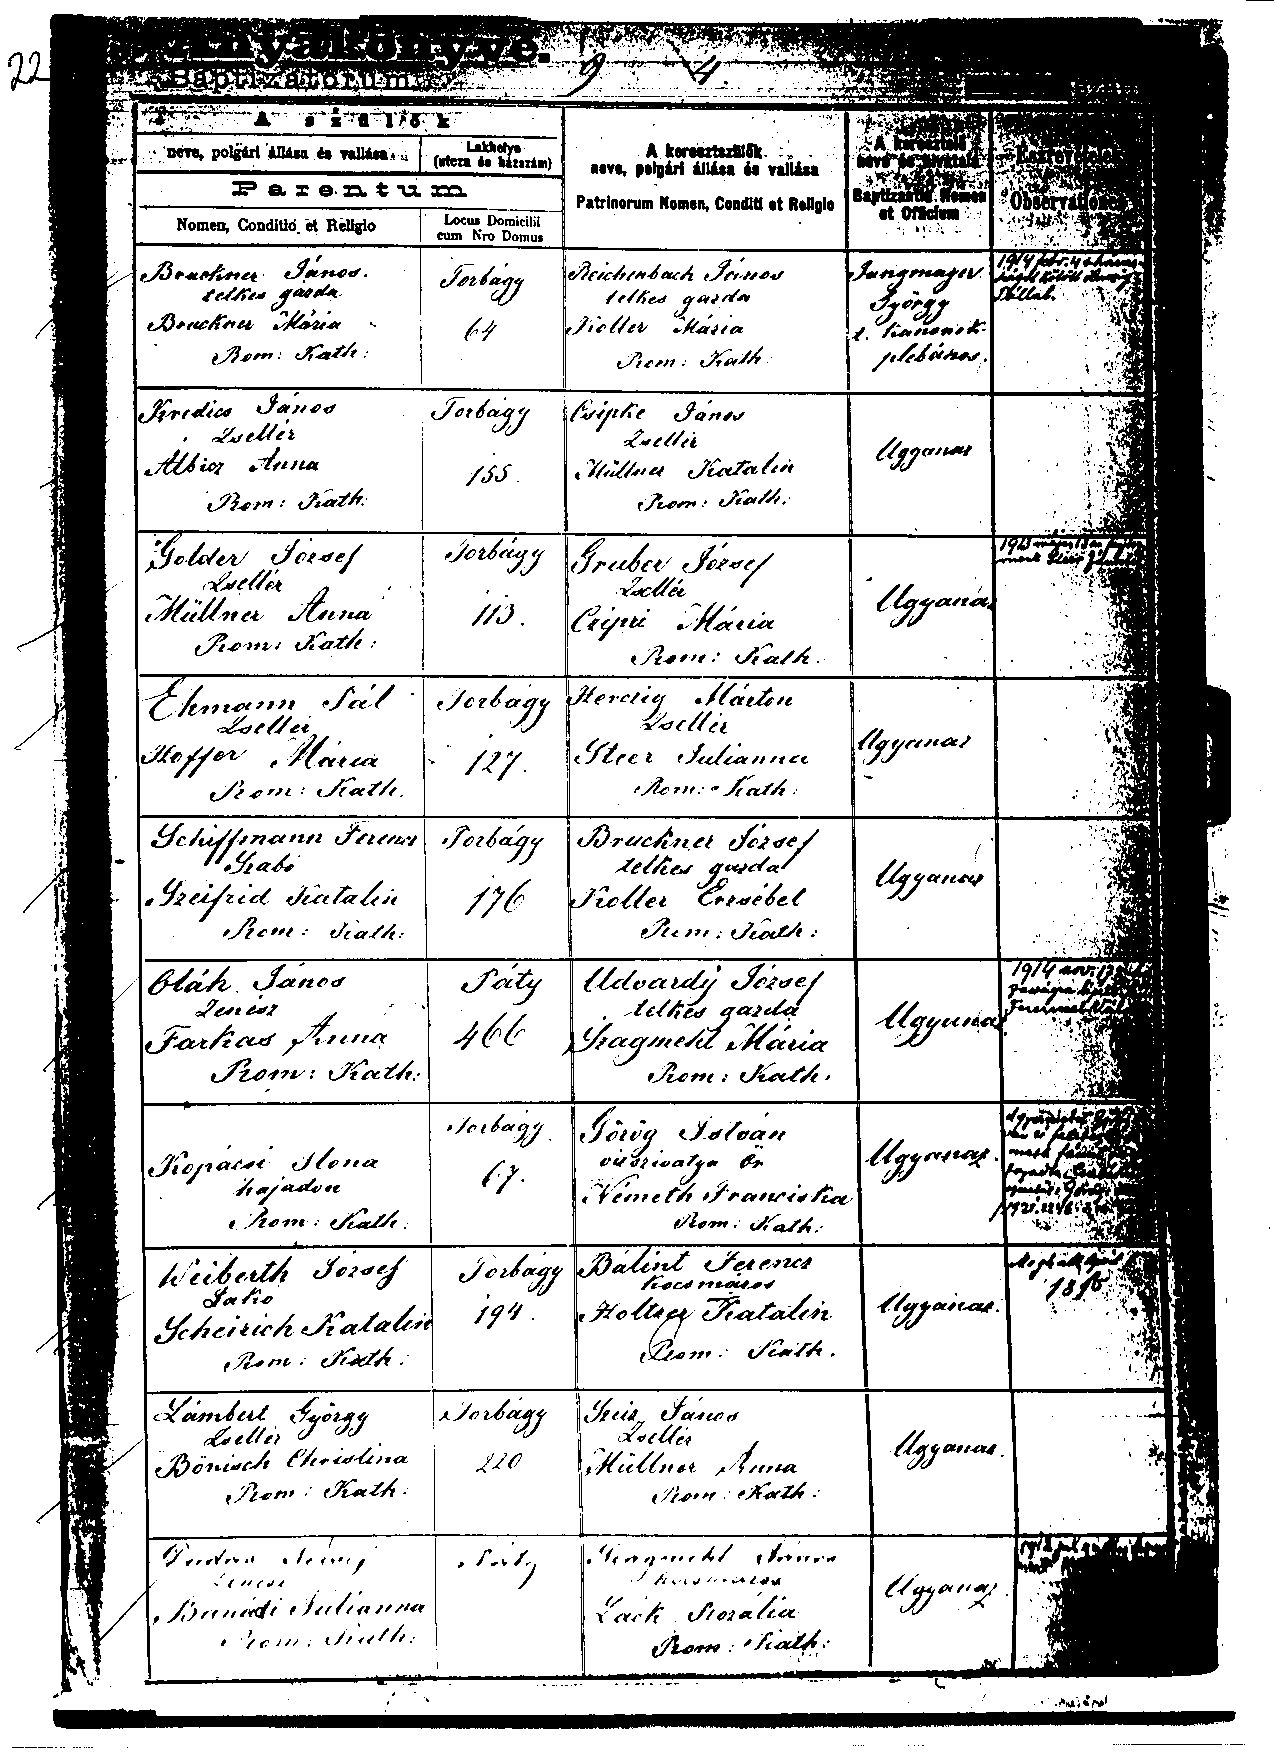 22
Anyakönyve.
Baptizatorum
9 4.
A szülők
neve, polgári állása és vallása
Lakhelye
(utcza és házszám)
Parentum
Nomen, Conditio et Religio
Locus Domicilii
cum Nro Domus
A keresztszülők
neve, polgári állása és vallása
Patrinorum Nomen, Conditi et Religio
A keresztelő
neve és hivatala
Baptizantis Nomen
et Officium
Észrevételek
Observationes
Bruckner János
telkes gazda
Bruckner Mária
Rom: Kath:
Torbágy
64
Reichenbach János
telkes gazda
Koller Mária
Rom: Kath
Jungmayer
György
t. kanonok
plébános.
1914 febr. 4
Kredics János
Zsellér
Albicz Anna
Rom: Kath:
Torbágy
155.
Csipke János
Zsellér
Müllner Katalin
Rom: Kath:
Ugyanaz
Golder József
Zsellér
Müllner Anna
Rom: Kath:
Torbágy
113.
Gruber József
Zsellér
Czipri Mária
Rom: Kath.
Ugyanaz
1923 május 13
Ehmann Pál
Zsellér
Hoffer Mária
Rom: Kath.
Torbágy
127.
Herczig Márton
Zsellér
Steer Julianna
Rom: Kath:
Ugyanaz
Schiffmann Ferencz
Szabó
Szeifrid Katalin
Rom: Kath:
Torbágy
176
Bruckner József
telkes gazda
Koller Erzsébet
Rom: Kath:
Ugyanaz
Oláh János
Zenész
Farkas Anna
Rom: Kath:
Páty
466
Udvardy József
telkes gazda
Szagmehl Mária
Rom: Kath.
Ugyanaz
1914
Kopácsi Ilona
hajadon
Rom: Kath:
Torbágy
67.
Görög István
vízszivattyu őr
Németh Franciska
Rom: Kath:
Ugyanaz.
Weiberth József
Lakó
Scheirich Katalin
Rom: Kath:
Torbágy
194.
Bálint Ferencz
kocsmáros
Holtzer Katalin
Rom: Kath.
Ugyanaz.
Meghalt
1896
Lámbert György
Zsellér
Bönisch Christina
Rom: Kath:
Torbágy
220
Szeiz János
Zsellér
Müllner Anna
Rom: Kath:
Ugyanaz.
Zenész
Bunádi Julianna
Rom: Kath:
Páty
Szagmehl János
kocsmáros
Zack Rozália
Rom: Kath:
Ugyanaz